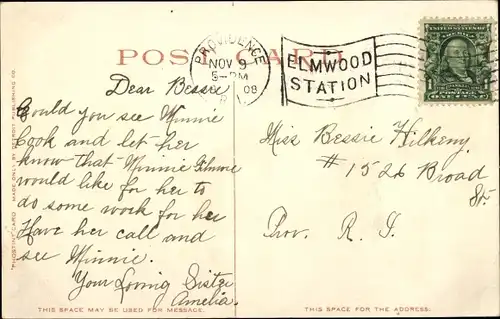 POST CARD
PROVIDENCE
NOV 9
5-PM
08
R.I.
ELMWOOD
STATION
Dear Bessie
Could you see Minnie
Cook and let her
know that Minnie
would like for her to
do some work for her
Have her call and
see Minnie.
Your Loving Sister
Amelia.
Miss Bessie Hilkeny
# 1526 Broad
St.
Prov. R. I.
"PHOSTINT" CARD MADE ONLY BY DETROIT PUBLISHING CO.
THIS SPACE MAY BE USED FOR MESSAGE.
THIS SPACE FOR THE ADDRESS.